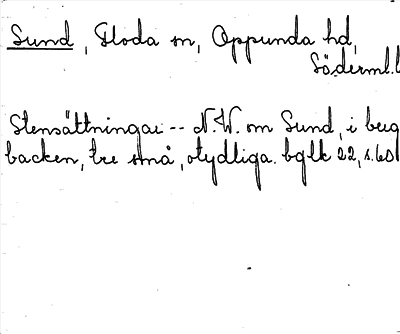 Sund, Floda sn, Oppunda hd,
Söderml.l
Stensättningar -- N.W. om Sund, i berg
backen, tre små, otydliga. bglk 22, s.60